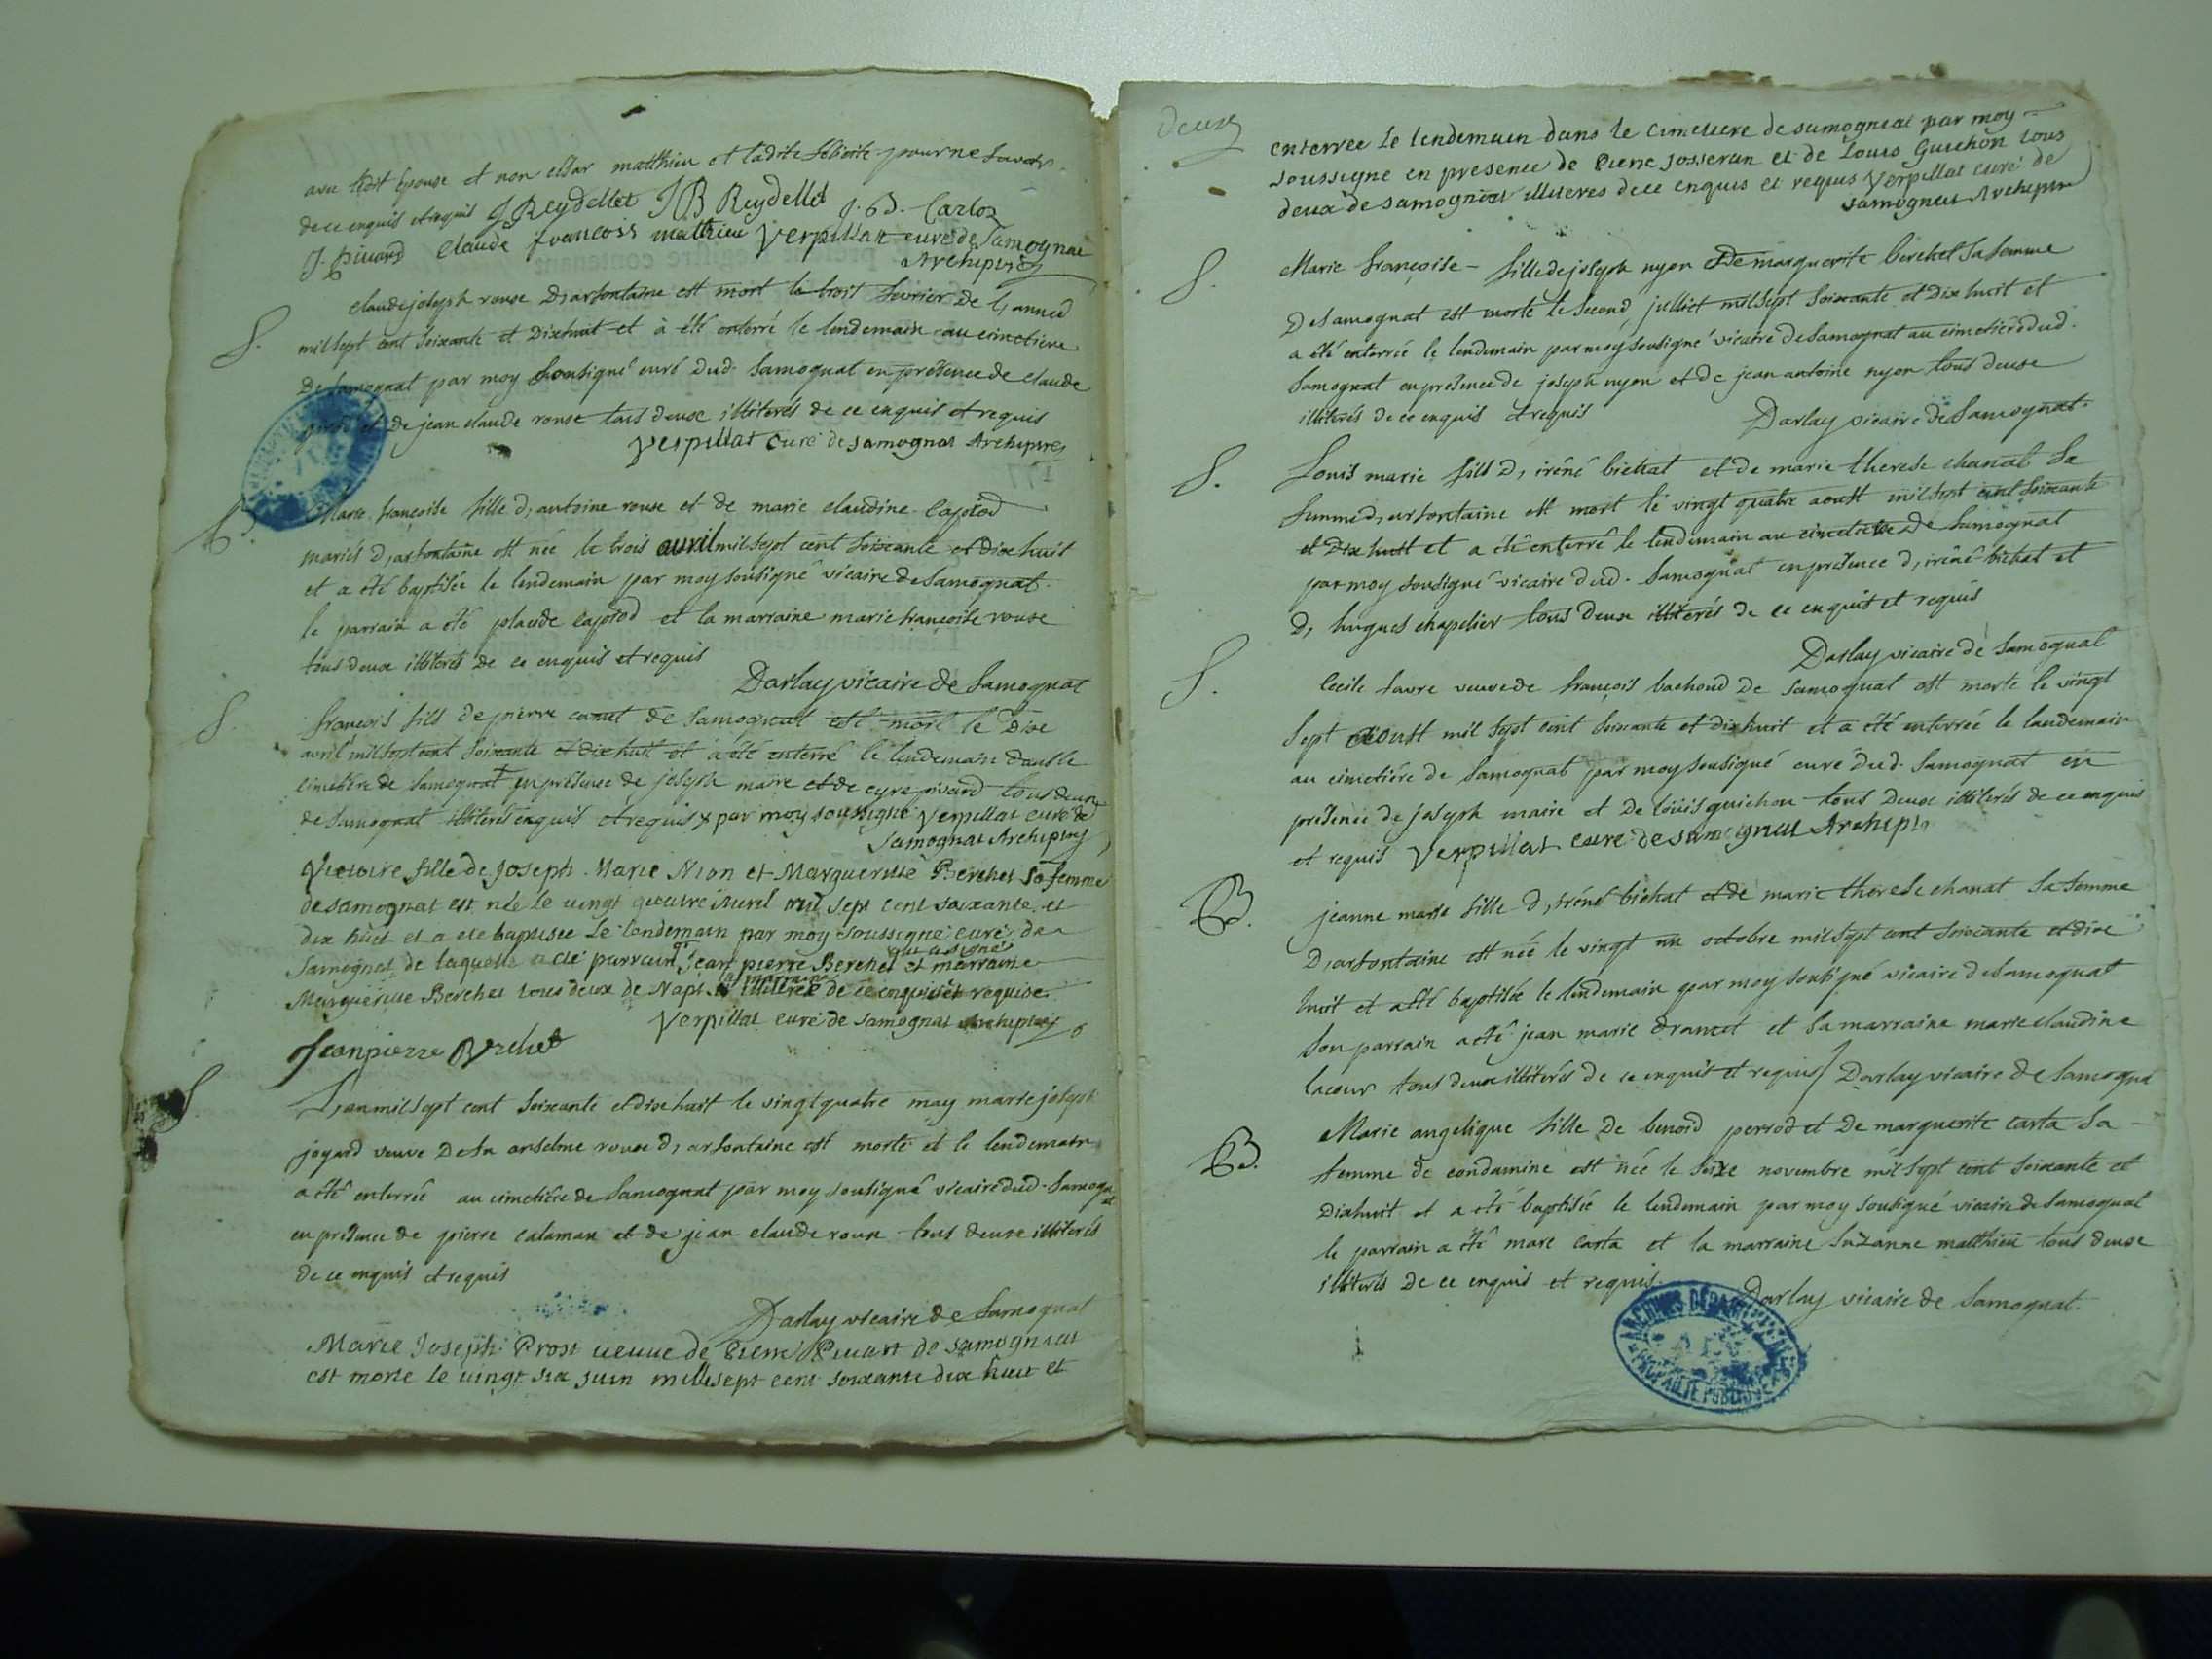 avec ledit Epouse et non cesar matthieu et ladite seboite pour ne savoir
de ce enquis et requis J Reydellet J B Reydellet J. B. Carloz
J. pivard Claude francois matthieu Verpillat curé de Samognat
Archiprêtre
S.
claude joseph rouse D, arfontaine est mort le trois fevrier de l, année
mil sept cent soixante et Dixhuit et à été enterré le lendemain au cimetiere
De Samognat par moy Sousigné curé Dud. Samognat en présence de claude
et de jean claude rouse tous deux illiterés de ce enquis et requis
Verpillat curé de samognat Archiprêtre
B.
Marie françoise fille d, antoine rouse et de marie claudine capiod
mariés D, arfontaine est née le trois avril mil sept cent soixante et Dixe huit
et a été baptisée le lendemain par moy sousigné vicaire de Samognat.
le parrain a été claude capiod et la marraine marie françoise rouse
tous deux illiterés de ce enquis et requis
Darlay vicaire de Samognat
S.
françois fils de pierre canet de Samognat est mort le Dixe
avril mil sept cent soixante et dixe huit et a été enterré le lendemain dans le
cimetière de Samognat + en présence de joseph maire et de cyre pivard tous deux
de Samognat illiterés enquis et requis x par moy soussigné Verpillat curé de
Samognat Archiprêtre
Victoire fille de Joseph Marie Nion et Marguerite Berchet sa femme
de samognat est née le vingt quatre avril mil sept cent soixante et
dix huit et a ete baptisée le lendemain par moy soussigné curé de
qui a signé
Samognat de laquelle a été parrain Jean pierre Berchet et marraine
la marraine
Marguerite Berchet tous deux de Napt illiterée de ce enquise et requise
Verpillat curé de samognat Archiprêtre
Jean pierre Berchet
S.
L, an mil sept cent soixante et dixe huit le vingt quatre may marie joseph
joyard veuve De fu anselme rouse d, arfontaine est morte et le lendemain
a été enterrée au cimetière de Samognat par moy sousigné vicaire dud. Samognat
en présence de pierre calaman et de jean claude rouse tous deux illiterés
de ce enquis et requis
Darlay vicaire de Samognat
Marie Joseph Prost veuve de Pierre Pivart de samognat
est morte le vingt six juin mille sept cent soixante dix huit et
deux
enterrée le lendemain dans le cimetiere de samognat par moy
soussigne en presence de Pierre Josseran et de Louis Guichon tous
deux de samognat illiteres de ce enquis et requis Verpillat curé de
samognat Archiprêtre
S.
Marie françoise fille de joseph nyon et De marguerite berchet sa femme
De Samognat est morte le second juillet mil sept soixante et Dix huit et
a été enterrée le lendemain par moy sousigné vicaire de Samognat au cimetière dud.
Samognat en présence de joseph nyon et de jean antoine nyon tous deux
illiterés de ce enquis et requis Darlay vicaire de Samognat.
S.
Louis marie fils D, iréné bichat et de marie therese chanat sa
femme d, arfontaine est mort le vingt quatre aoust mil sept cent soixante
et Dix huit et a été enterré le lendemain au cimetiere De Samognat
par moy sousigné vicaire dud. Samognat en présence d, iréné bichat et
D, hugues chapelier tous deux illiterés de ce enquis et requis
Darlay vicaire de Samognat
S.
Cecile favre veuve de françois bachoud De Samognat est morte le vingt
sept Aoust mil sept cent soixante et dixhuit et a été enterrée le landemain
au cimetiére de Samognat par moy sousigné curé Dud. Samognat en
présence de joseph maire et De loüis guichon tous Deux illiterés de ce enquis
et requis Verpillat curé de samognat Archip
B.
jeanne marie fille D, iréné bichat et de marie therese chanat sa femme
D, arfontaine est née le vingt un octobre mil sept cent soixante et dixe
huit et a été baptisée le lendemain par moy sousigné vicaire de Samognat
son parrain a été jean marie Drancet et sa marraine marie claudine
lacour tous deux illiterés de ce enquis et requis / Darlay vicaire de Samogna
B.
Marie angelique fille De benoid perrod et De marguerite carta sa
femme de condamine est née le seize novembre mil sept cent soixante et
Dixhuit et a été baptisée le lendemain par moy sousigné vicaire de Samognat
le parrain a été marc carta et la marraine Suzanne matthieu tous deux
illiterés De ce enquis et requis.
Darlay vicaire de Samognat.
ARCHIVES DEPARTEMENTALES
PROPRIETE PUBLIQUE